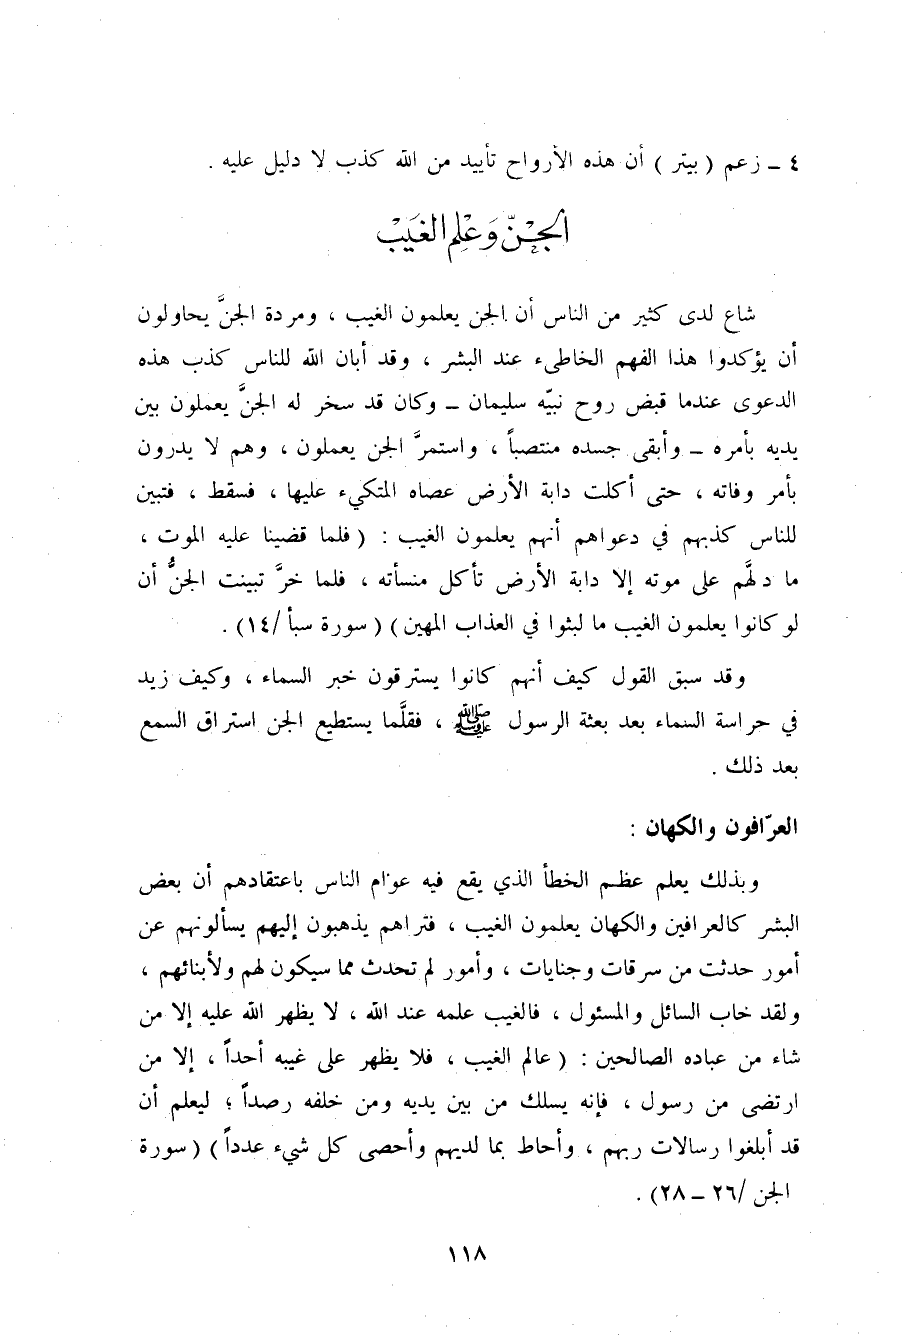 ٤ ــ زعم ( بيتر ) أن هذه الأرواح تأييد من الله كذب لا دليل عليه .
الجِنّ وَعْلِم الغَيَبْ
شاع لدى كثير من الناس أن الجن يعلمون الغيب ، ومردة الجنَّ يحاولون
أن يؤكدوا هذا الفهم الخاطىء عند البشر ، وقد أبان الله للناس كذب هذه
الدعوى عندما قبض روح نبيّه سليمان ــ وكان قد سخر له الجنَّ يعملون بين
يديه بأمره ــ وأبقى جسده منتصباً ، واستمرَّ الجن يعملون ، وهم لا يدرون
بأمر وفاته ، حتى أكلت دابة الأرض عصاه المتكيء عليها ، فسقط ، فتبين
للناس كذبهم في دعواهم أنهم يعلمون الغيب : ( فلما قضينا عليه الموت ،
ما دلَّهم على موته إلا دابة الأرض تأكل منسأته ، فلما خرَّ تبينت الجنُّ أن
لو كانوا يعلمون الغيب ما لبثوا في العذاب المهين ) ( سورة سبأ /١٤) .
وقد سبق القول كيف أنهم كانوا يسترقون خبر السماء ، وكيف زيد
في حراسة السماء بعد بعثة الرسول ﷺ ، فقلَّما يستطيع الجن استراق السمع
بعد ذلك .
العرّافون والكهان :
وبذلك يعلم عظم الخطأ الذي يقع فيه عوام الناس باعتقادهم أن بعض
البشر كالعرافين والكهان يعلمون الغيب ، فتراهم يذهبون إليهم يسألونهم عن
أمور حدثت من سرقات وجنايات ، وأمور لم تحدث مما سيكون لهم ولأبنائهم ،
ولقد خاب السائل والمسئول ، فالغيب علمه عند الله ، لا يظهر الله عليه إلا من
شاء من عباده الصالحين : ( عالم الغيب ، فلا يظهر على غيبه أحداً ، إلا من
ارتضى من رسول ، فإنه يسلك من بين يديه ومن خلفه رصداً ؛ ليعلم أن
قد أبلغوا رسالات ربهم ، وأحاط بما لديهم وأحصى كل شيء عدداً ) ( سورة
الجن /٢٦ ــ ٢٨) .
١١٨